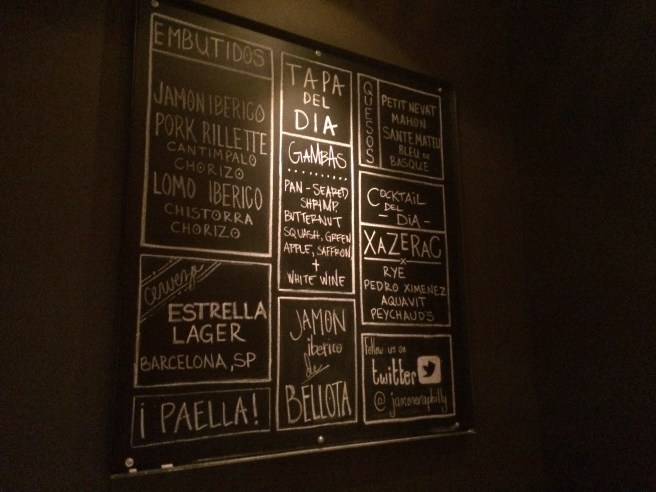 EMBUTIDOS
JAMON IBERICO
PORK RILLETTE
CANTIMPALO
CHORIZO
LOMO IBERICO
CHISTORRA
CHORIZO
cerveza
ESTRELLA
LAGER
BARCELONA, SP
¡ PAELLA!
TAPA
DEL
DIA
GAMBAS
PAN-SEARED
SHRIMP,
BUTTERNUT
SQUASH, GREEN
APPLE, SAFFRON,
+
WHITE WINE
JAMON
iberico
de
BELLOTA
QUESOS
PETIT NEVAT
MAHON
SANTE MATEU
BLEU DE
BASQUE
COCKTAIL
DEL
- DIA -
XAZERAC
x
RYE
PEDRO XIMENEZ
AQUAVIT
PEYCHAUD'S
Follow us on
twitter
@ jamoneraphilly